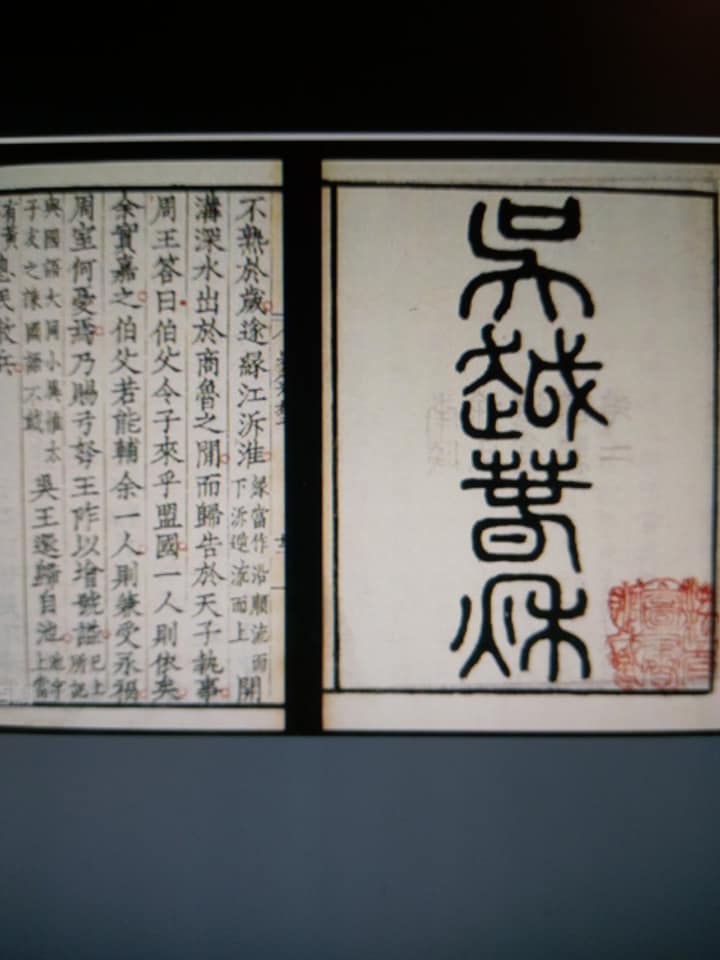 吳越春秋
不熟於歲途緣江泝淮緣當作沿順流而下泝逆流而上開
溝深水出於商魯之間而歸告於天子執事
周王答曰伯父令子來乎盟國一人則依矣
余實嘉之伯父若能輔余一人則兼受永福
周室何憂焉乃賜弓弩王阼以增號諡已上所記
與國語大同小異惟太子友之諫國語不載吳王還歸自池池字上當
有黃息民散兵